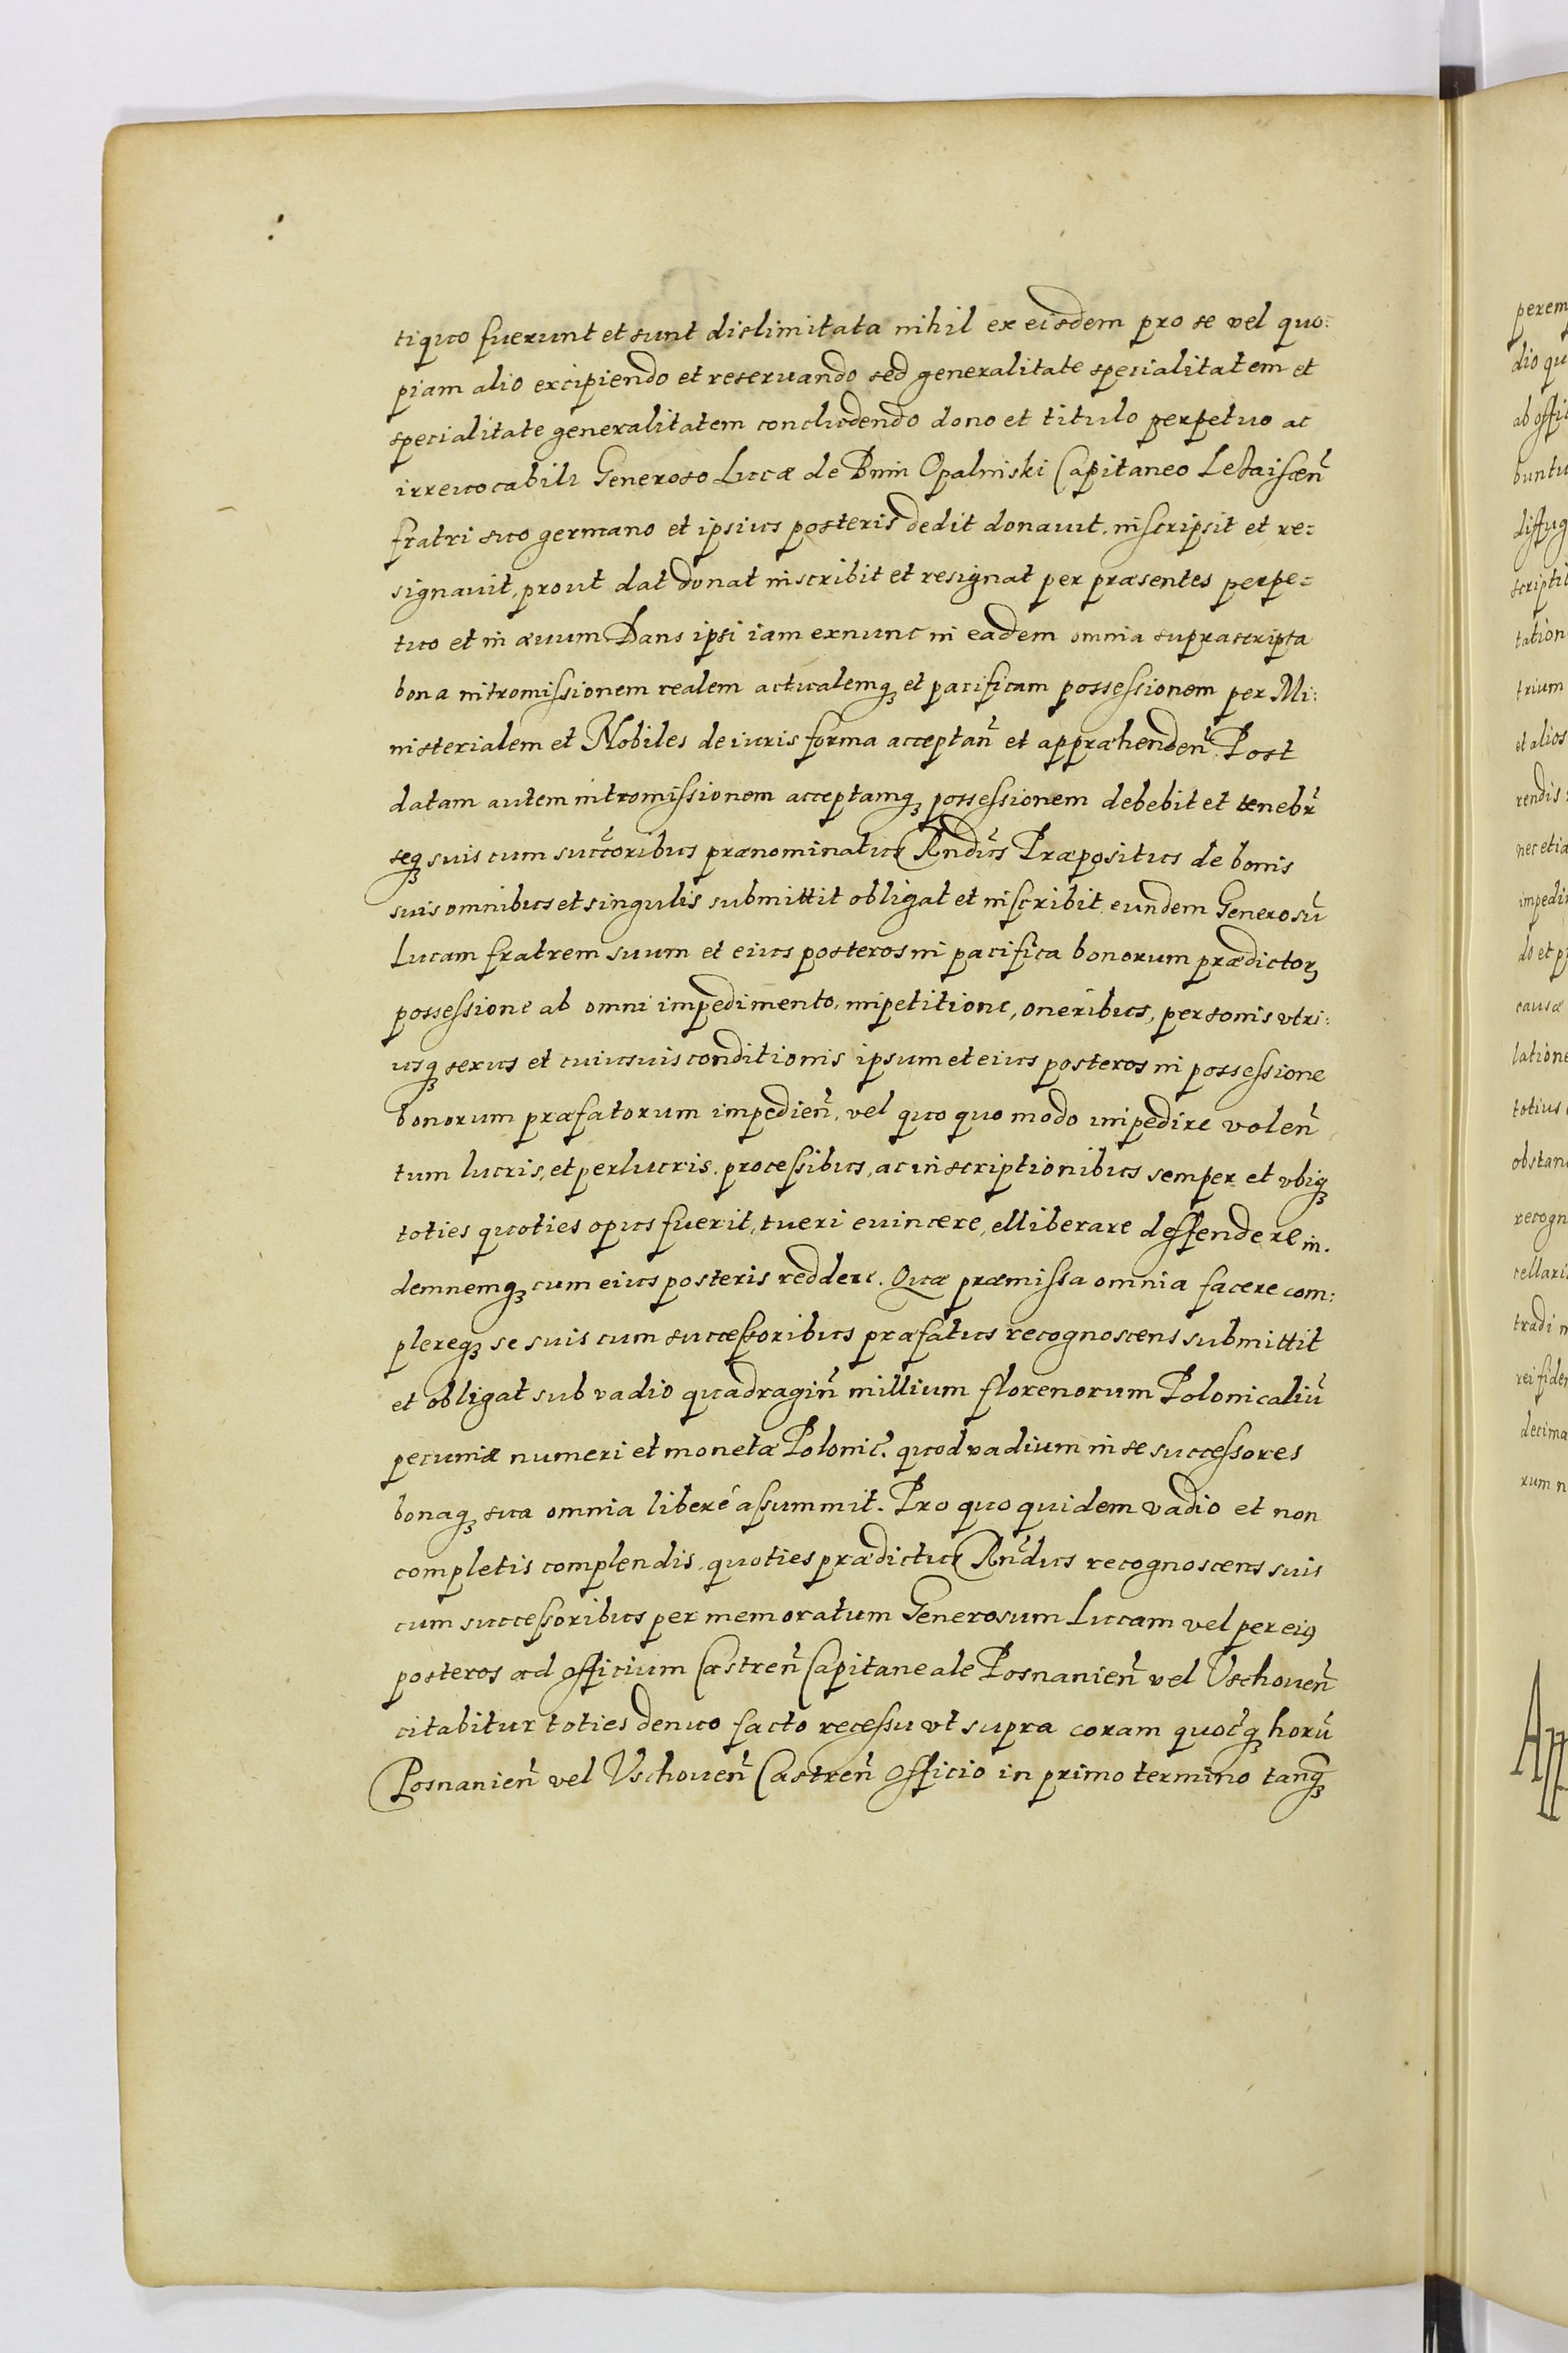 tiquo fuerunt et sunt dislimitata nihil ex eisdem pro se vel quo:
piam alio excipiendo et reseruando sed generalitate specialitatem et
specialitate generalitatem concludendo dono et titulo perpetuo ac
irreuocabili Generoso Lucæ de Bnin Opalinski Capitaneo Leżaiscen̄
fratri suo germano et ipsius posteris dedit donauit, inscripsit et re:
signauit, prout dat donat inscribit et resignat per præsentes perpe=
tuo et in æuum Dans ipsi iam exnunc in eadem omnia suprascripta
bona intromissionem realem actualemq₃ et pacificam possessionem per Mi:
nisterialem et Nobiles de iuris forma acceptan̄ et appræhenden̄. Post
datam autem intromissionem acceptamq₃ possessionem debebit et tenebr̄
seq₃ suis cum succ̄oribus prænominatus Rndūs Præpositus de bonis
suis omnibus et singulis submittit obligat et inscribit eundem Generosū
Lucam fratrem suum et eius posteros in pacifica bonorum prædictoꝝ
possessione ab omni impedimento, impetitione, oneribus, personis vtri:
usq₃ sexus et cuiusuis conditionis ipsum et eius posteros in possessione
bonorum præfatorum impedien̄, vel quo quo modo impedire volen̄
tum lucris, et perlucris, processibus, ac inscriptionibus semper et vbiq₃
toties quoties opus fuerit, tueri euincere, elliberare deffendere in.
demnemq₃ cum eius posteris reddere. Quæ præmissa omnia facere com:
plereq₃ se suis cum successoribus præfatus recognoscens submittit
et obligat sub vadio quadragin̄ millium florenorum Polonicaliū
pecuniæ numeri et monetæ Polonic̄. quod vadium in se successores
bonaq₃ sua omnia liberé assummit. Pro quo quidem vadio et non
completis complendis, quoties prædictus Rn̄dus recognoscens suis
cum successoribus per memoratum Generosum Lucam vel per eiꝰ
posteros ad officium Castren̄ Capitaneale Posnanien̄ vel Vschouen̄
citabitur toties denuo facto recessu vt supra coram quoc̄q₃ horū
Posnanien̄ vel Vschouen̄ Castren̄ Officio in primo termino tanq̄₃
perem
dio qu
ab offi
buntu
diffug
scripti
tation
trium
et alios
rendis
nec etia
impedi
do et p
causæ
latione
totius
obstan
recogn
cellari
tradi
rei fide
decima
rum n
App